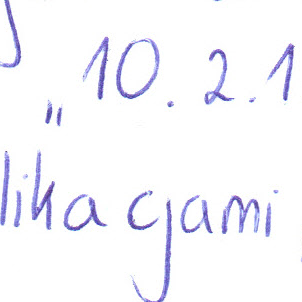 „10.2.1
likacjami